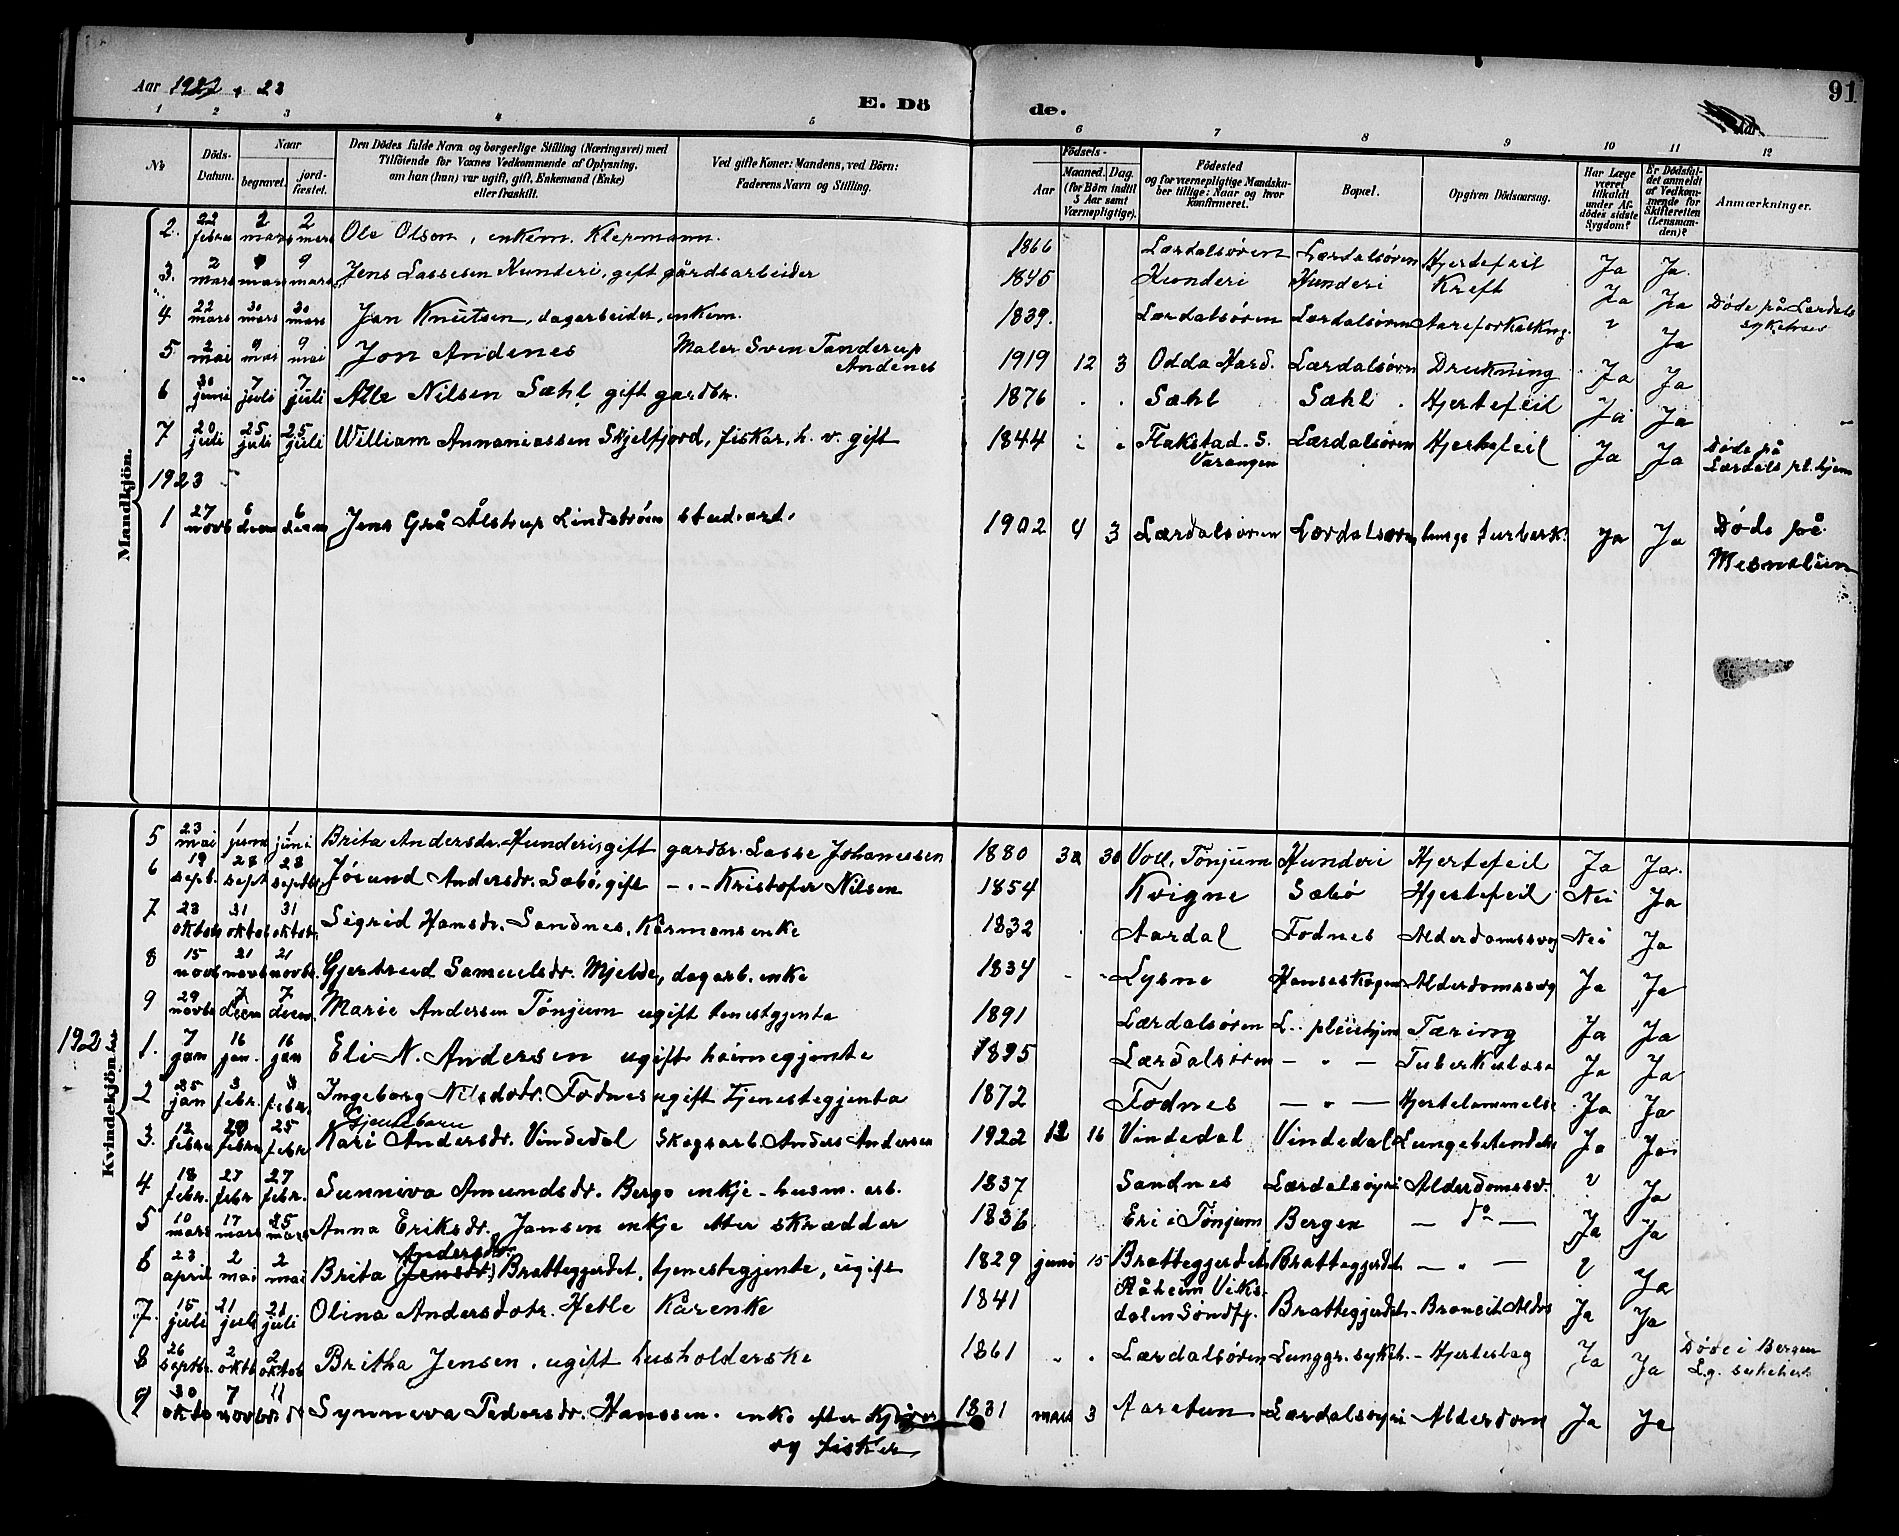 Aar 1922 & 23
E. Döde.
91
1 2 3 4 5 6 7 8 9 10 11 12
No Döds-Datum. Naar begravet. jordfæstet. Den Dödes fulde Navn og borgerlige Stilling (Næringsvei) med Tilföiende for Voxnes Vedkommende af Oplysning, om han (hun) var ugift, gift, Enkemand (Enke) eller fraskilt. Ved gifte Koner: Mandens, ved Börn: Faderens Navn og Stilling. Födsels- Aar Maaned. Dag. (for Börn indtil 5 Aar samt Værnepligtige). Födested og for værnepligtige Mandskaber tillige: Naar og hvor Konfirmeret. Bopæl. Opgiven Dödsaarsag. Har Læge været tilkaldt under Afdödes sidste Sygdom? Er Dödsfaldet anmeldt af Vedkommende for Skifteretten (Lensmanden)? Anmærkninger.
Mandkjön.
2. 22 febru 2 mars 2 mars Ole Olson, enkem. Klepmann. 1866 Lærdalsøren Lærdalsøren Hjertefeil Ja Ja.
3. 2 mars 9 mars 9 mars Jens Lassesen Hunderi, gift gårdsarbeider 1845 Hunderi Hunderi Kreft Ja Ja
4 22 mars 30 mars 30 mars Jan Knutsen, dagarbeider, enkem. 1839. Lærdalsøren Lærdalsøren Aareforkalkng. Ja Døde på Lærdals sykehus
5 2 mai 9 mai 9 mai Jon Andenes Maler Sven Tanderup Andenes 1919 12 3 Odda Hard. Lærdalsørn Drukning Ja Ja
6 30 juni 7 juli 7 juli Atle Nilsen Sæhl gift gardbr. 1876 Sæhl Sæhl Hjertefeil Ja Ja
7 20 juli 25 juli 25 juli William Annaniassen Skjelfjord, fiskar, h. v. gift 1844 Flakstad. S. Varangen Lærdalsøren Hjertefeil Ja Ja Døde på Lærdals pl. hjem
1923
1 27 novb 6 desm 6 desm Jens Grå Ålstrup Lindstrøm stud. art. 1902 4 3 Lærdalsøren Lærdalsøren lunge turberk. Ja Ja Døde på Mesnalien
Kvindekjön.
5 23 mai 1 juni 1 juni Brita Andersdr. Hunderi, gift gardbr. Lasse Johanessen 1880 30 Voll, Tønjum Hunderi Hjertefeil Ja Ja.
6 19 sept. 28 sept 28 septb. Jørund Andersdr. Sæbø, gift - „ - Kristofer Nilsen 1854 Kvigne Sæbø Hjertefeil Nei Ja
7 23 oktob 31 oktob 31 oktob. Sigrid Hansdr. Sandnes, Kårmans enke 1832 Aardal Fodnes Alderdomssvag Nei Ja
8 15 novb 21 novb 21 novbr. Gjertrud Samuelsdr. Mjelde, dagarb. enke 1834 Lysne Hanseskogen Alderdomssvag Ja Ja
9 29 novb 7 desm 7 desm. Marie Andersen Tønjum ugift tenestgjenta 1891 Lærdalsøren L. pleiehjem Tæring Ja Ja
192
1. 7 jan 16 jan. 16 jan Eli N. Andersen ugift heimegjente 1895 Lærdalsøren - „ - Tuberkulose Ja Ja
2 25 jan 3 febr. 3 febr. Ingeborg Nilsdotr. Fodnes ugift tjenestegjenta 1872 Fodnes - „ - Hjertelammelse Ja Ja
Gjentebarn
3. 12 febru 20 febru 25 febru Kari Andersdr. Vindedal Skogsarb. Anders Andersen 1922 12 16 Vindedal Vindedal Lungebetendelse Ja Ja
4 18 febr. 27 febr 27 febr. Sunniva Amundsdr. Berge enkje - husm. arb. 1837 Sandnes Lærdalsøyri Alderdomssv. ? Ja
5 10 mars 17 mars 25 mars Anna Eriksdr. Jansen enkje etter skrædder 1836 Eri i Tønjum Bergen - do - Ja Ja
Andersdr.
6 23 april 2 mai 2 mai Brita (Jensdr.) Brattegjerdet, tjenestegjente, ugift 1829 juni 15 Brattegjerdet Brattegjerdet - „ - ? Ja
7. 15 juli 21 juli 21 juli Olina Andersdotr. Hetle Kårenke 1841 Råheim Viksdalen Søndfj. Brattegjerdet Ja Ja
8 26 septbr. 2 oktb 2 oktob Britha Jensen. ugift husholderske 1861 Lærdalsøren Lunggr. sykeh. - Hjerteslag Ja Ja Døde i Bergen L.g. sukehus
9 30 oktb 7 novb 11 Synneva Pedersdr. Hanssen. enke efter
og fisker
1831 mars 3 Aaretun Lærdalsøyri Alderdom Ja Ja